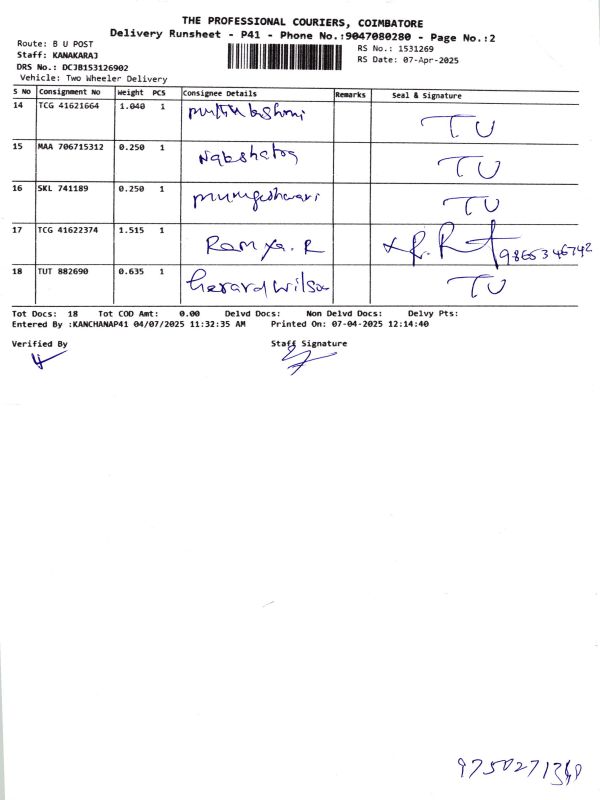 THE PROFESSIONAL COURIERS, COIMBATORE
Delivery Runsheet - P41 - Phone No.:9047080280 - Page No.:2
Route: B U POST
RS No.: 1531269
Staff: KANAKARAJ
RS Date: 07-Apr-2025
DRS No.: DCJB153126902
Vehicle: Two Wheeler Delivery
S No Consignment No Weight PCS Consignee Details Remarks Seal & Signature
14 TCG 41621664 1.040 1 TU
15 MAA 706715312 0.250 1 Nakshatra TU
16 SKL 741189 0.250 1 Murugeshwari TU
17 TCG 41622374 1.515 1 Ramya. R 9865346742
18 TUT 882690 0.635 1 Gerard Wilson TU
Tot Docs: 18 Tot COD Amt: 0.00 Delvd Docs: Non Delvd Docs: Delvy Pts:
Entered By :KANCHANAP41 04/07/2025 11:32:35 AM Printed On: 07-04-2025 12:14:40
Verified By Staff Signature